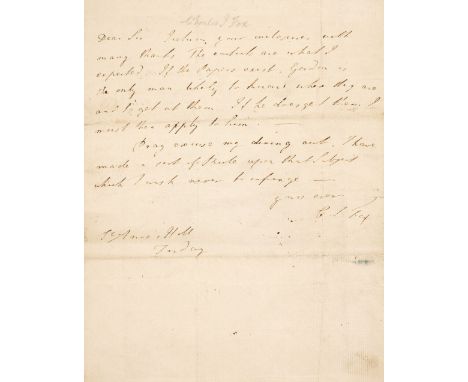 Charles J Fox
Dear Sir I return your inclosures with
many thanks. The contents are what I
expected. If the Papers exist, Gordon is
the only man likely to know where they are
and to get at them. If he does get them, I
must then apply to him. —
Pray excuse my dining out. I have
made a sort of Rule upon that Subject
which I wish never to infringe —
yours ever
C. J. Fox
St Anne's Hill